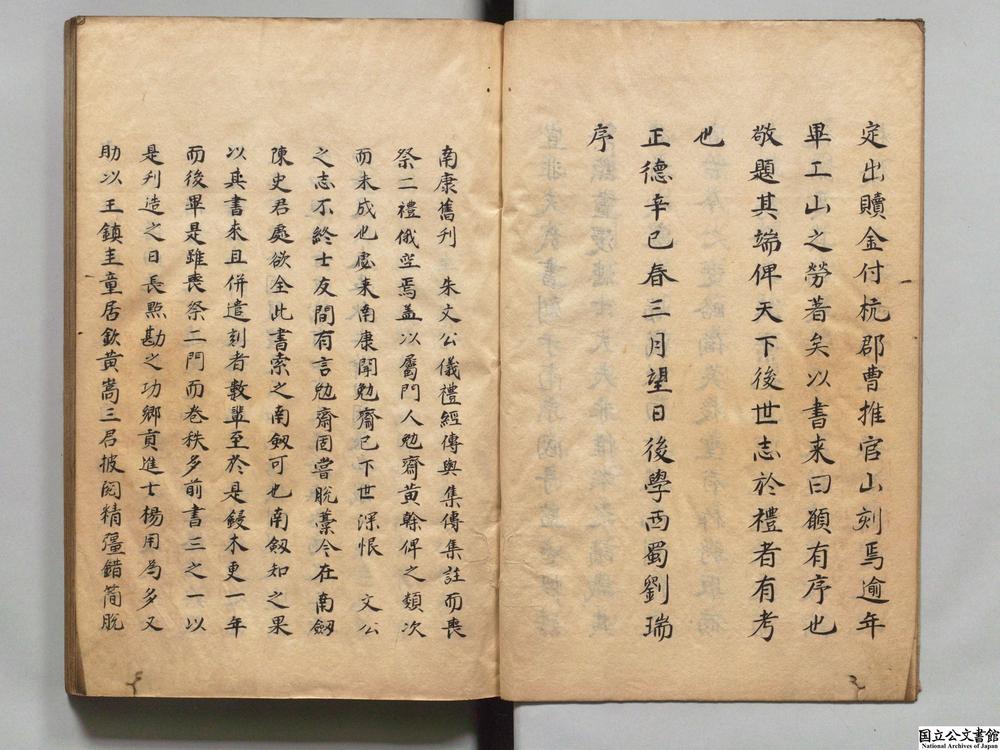 定出贖金付杭郡曹推官山刻焉逾年
畢工山之勞著矣以書来曰願有序也
敬題其端俾天下後世志於禮者有考
也
正德辛巳春三月望日後學西蜀劉瑞
序
南康舊刊　朱文公儀禮經傳與集傳集註而喪
祭二禮俄空焉蓋以屬門人勉齋黃榦俾之類次
而未成也虙来南康聞勉齋已下世深恨　文公
之志不終士友間有言勉齋固嘗脫藁今在南劔
陳史君處欲全此書索之南劔可也南劔知之果
以其書來且併遣刻者數輩至於是鋟木更一年
而後畢是雖喪祭二門而卷秩多前書三之一以
是刋造之日長㸃勘之功鄉貢進士楊用為多又
助以王鎮圭童居欽黃嵩三君披閱精彊錯简脫
国立公文書館
National Archives of Japan